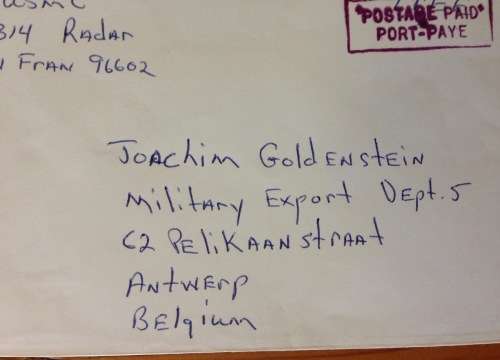 USMC
314 Radar
Fran 96602
"POSTAGE PAID"
PORT-PAYE
Joachim GoldENStEiN
Military Export Dept. 5
62 PEliKAANStrAAt
ANtwErp
BElgium